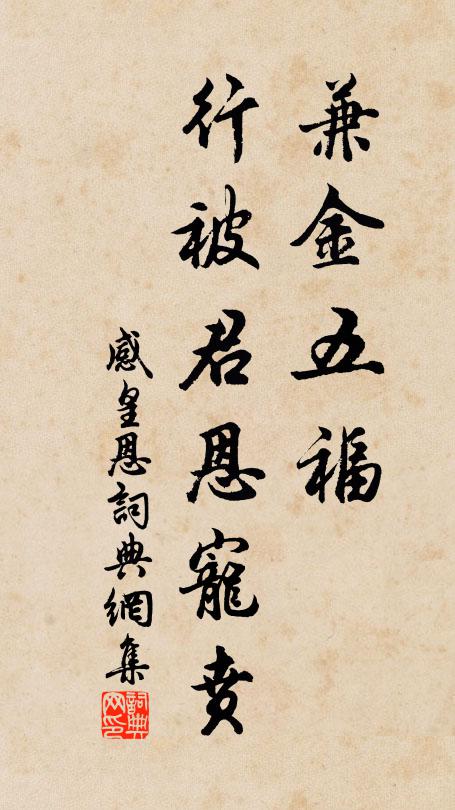 兼金五福
行被君恩寵賁
感皇恩詞典網集
詞典网印